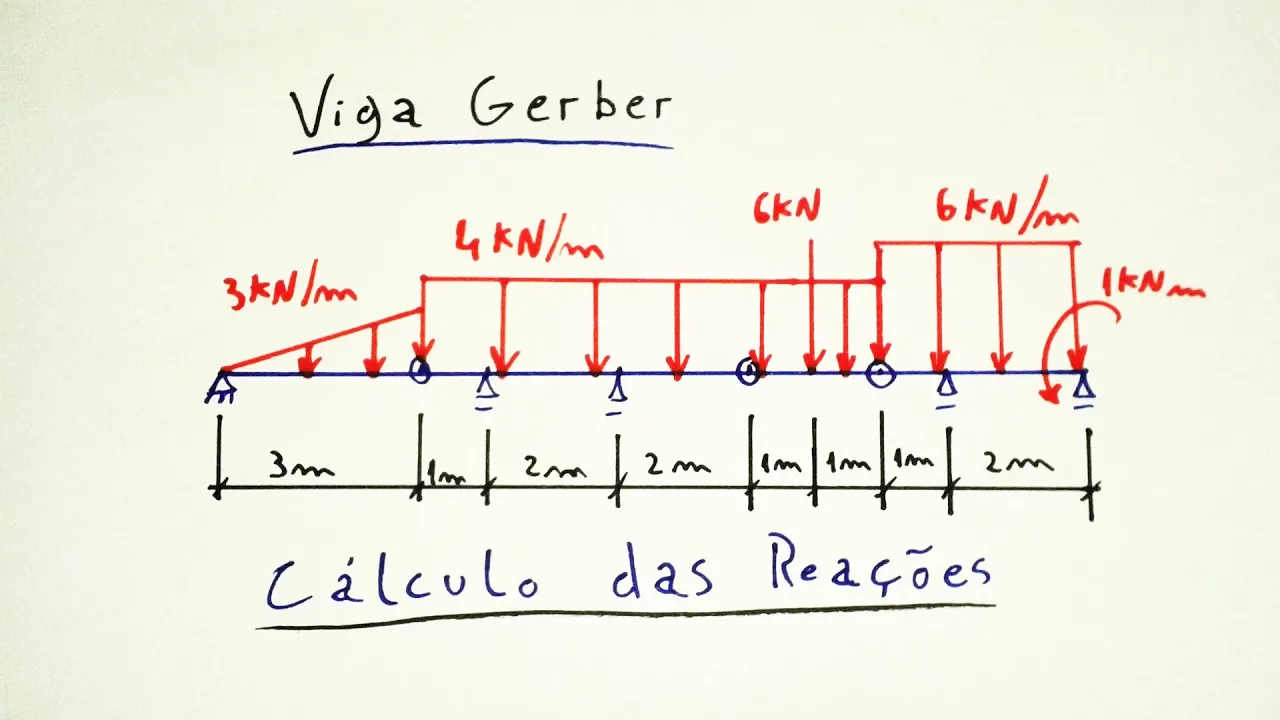 Viga Gerber
6KN 6KN/m
4KN/m
3KN/m 1KNm
3m 1m 2m 2m 1m 1m 1m 2m
Cálculo das Reações